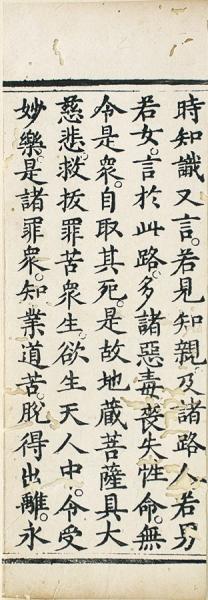 時知識又言。若見知親乃諸路人若男
若女。言於此路。多諸惡毒喪失性命。無
令是衆。自取其死。是故地藏菩薩具大
慈悲。救拔罪苦衆生欲生天人中。令受
妙樂。是諸罪衆。知業道苦。脫得出離。永